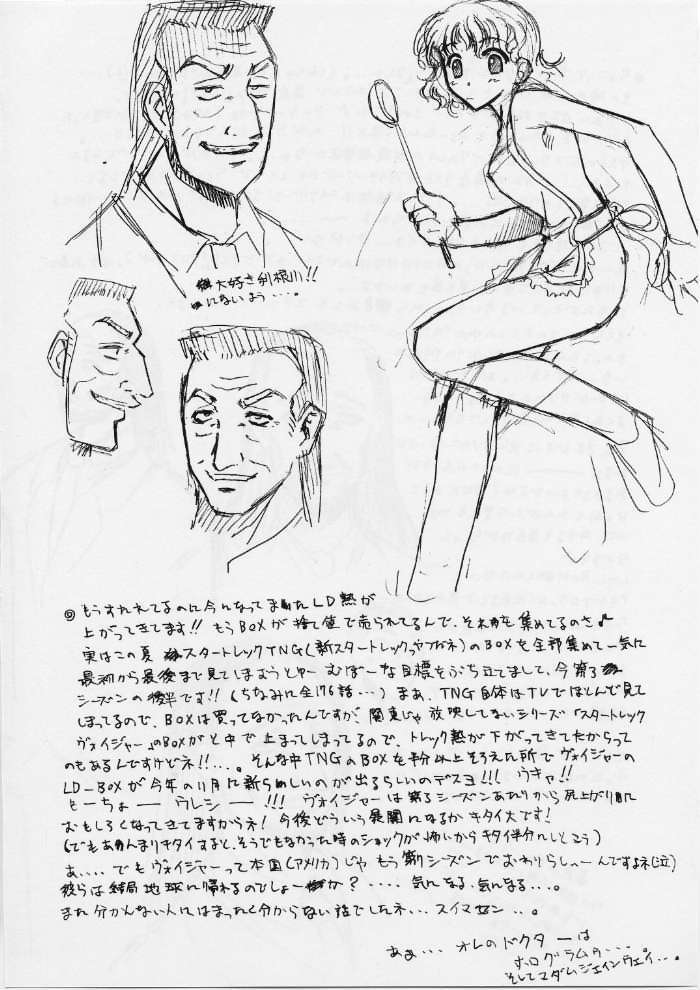 大好き利根川!!
にないよう...
◎ もうすたれてるのに今になってまたLD熱が
上がってきてます!! もうBOXが捨て値で売られてるんで、それを集めてるのさ♪
実はこの夏 スタートレックTNG(新スタートレック、やつがネ)のBOXを全部集めて一気に
最初から最後まで見てしまおうとゆー むぼーな目標をぶち立てまして、今第5
シーズンの後半です!! (ちなみに全176話...) まあ、TNG自体はTVでほとんど見て
しまってるので、BOXは買ってなかったんですが、関東じゃ放映してないシリーズ「スタートレック
ヴォイジャー」のBOXがと中で止まってしまってるので、トレック熱が下がってきてたからって
のもあるんですけどネ!!...。そんな中TNGのBOXを半分以上そろえた所でヴォイジャーの
LD-BOXが今年の11月に新らしいのが出るらしいのデスヨ!!! ウキャ!!
とーちょー ウレシー!!! ヴォイジャーは第3シーズンあたりから尻上がり的に
おもしろくなってきてますからネ! 今後どういう展開になるかキタイ大です!
(でもあんまりキタイすると、そうでもなかった時のショックが怖いからキタイ半分にしとこう)
あ.... でもヴォイジャーって本国(アメリカ)じゃもう第7シーズンでおわりらしーんですよネ(泣)
彼らは結局地球に帰れるのでしょーか?.... 気になる、気になる...。
また分かんない人にはまったく分からない話でしたネ... スイマセン...。
あぁ... オレのドクターは
ホログラムゥ...。
そしてマダムジェインウェイ...。